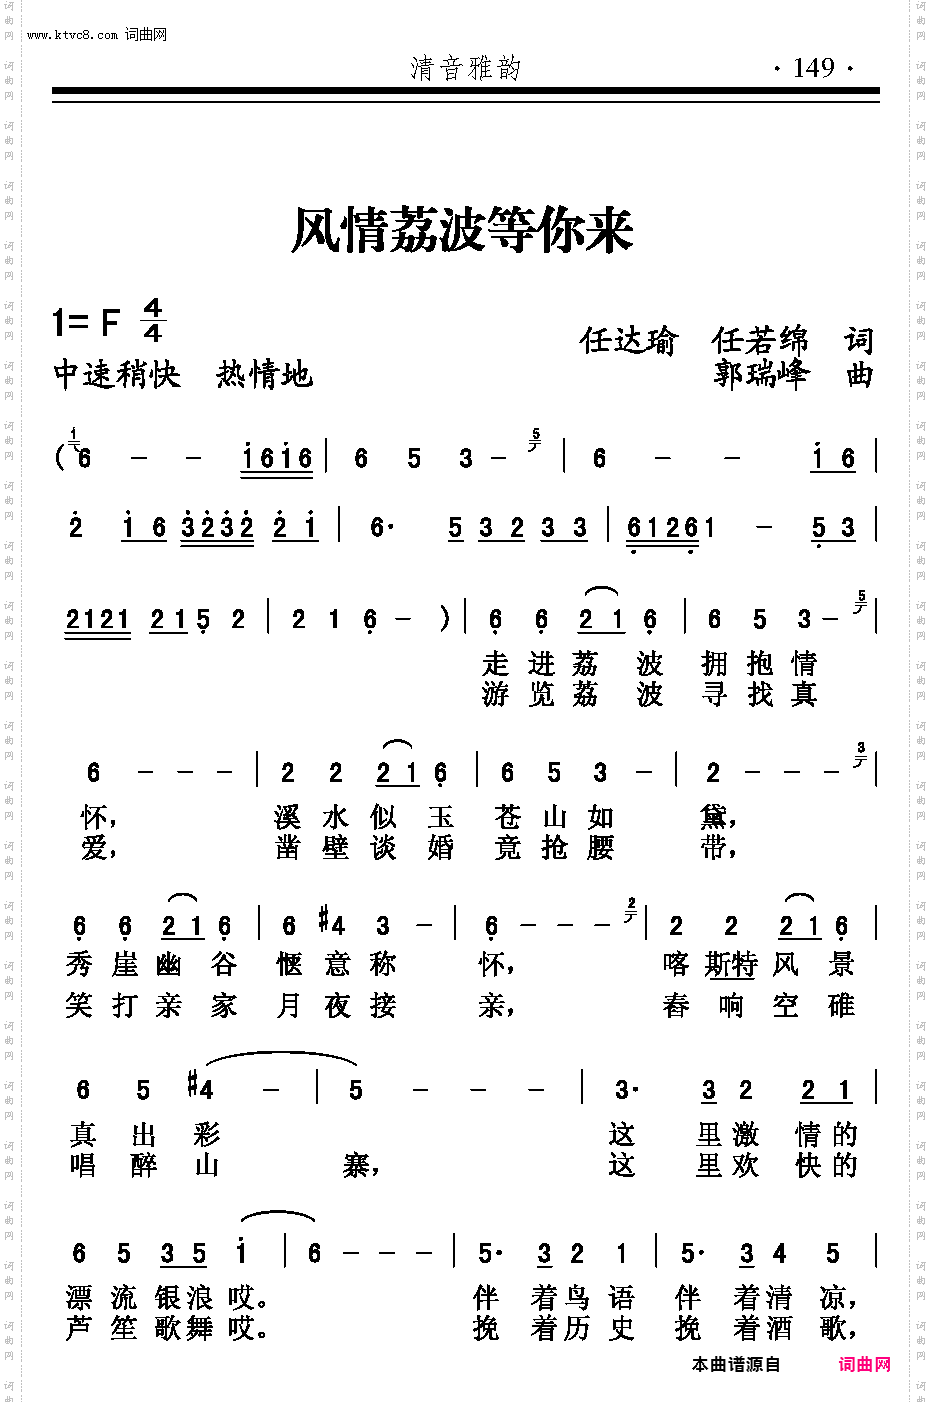 www.ktvc8.com 词曲网
清音雅韵 · 149 ·
风情荔波等你来
1= F 4/4
任达瑜 任若绵 词
中速稍快 热情地 郭瑞峰 曲
( 1 6 - - 1 6 1 6 | 6 5 3 - 5 | 6 - - 1 6 |
2 1 6 3 2 3 2 2 1 | 6· 5 3 2 3 3 | 6 1 2 6 1 - 5 3 |
2 1 2 1 2 1 5 2 | 2 1 6 - ) | 6 6 2 1 6 | 6 5 3 - 5 |
走 进 荔 波 拥 抱 情
游 览 荔 波 寻 找 真
6 - - - | 2 2 2 1 6 | 6 5 3 - | 2 - - - 3 |
怀， 溪 水 似 玉 苍 山 如 黛，
爱， 凿 壁 谈 婚 竟 抢 腰 带，
6 6 2 1 6 | 6 #4 3 - | 6 - - 2 | 2 2 2 1 6 |
秀 崖 幽 谷 惬 意 称 怀， 喀 斯特 风 景
笑 打 亲 家 月 夜 接 亲， 舂 响 空 碓
6 5 #4 - | 5 - - - | 3· 3 2 2 1 |
真 出 彩 这 里 激 情 的
唱 醉 山 寨， 这 里 欢 快 的
6 5 3 5 1 | 6 - - - | 5· 3 2 1 | 5· 3 4 5 |
漂 流 银 浪 哎。 伴 着 鸟 语 伴 着 清 凉，
芦 笙 歌 舞 哎。 挽 着 历 史 挽 着 酒 歌，
本曲谱源自 词曲网